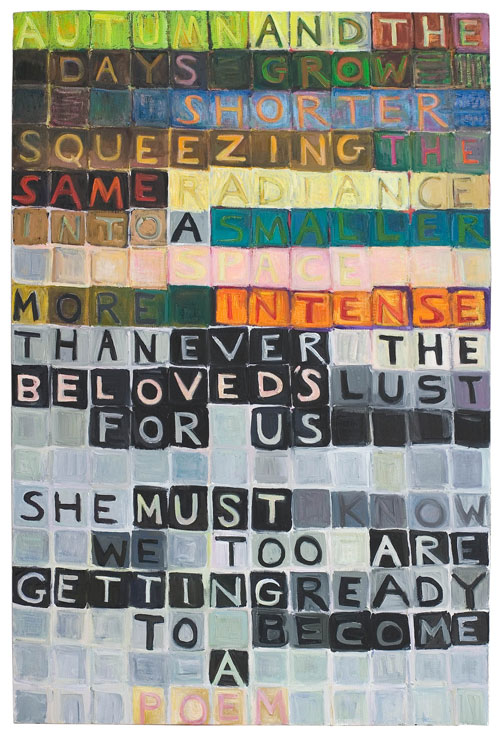 AUTUMN AND THE
DAYS GROW
SHORTER
SQUEEZING THE
SAME RADIANCE
INTO A SMALLER
SPACE
MORE INTENSE
THAN EVER THE
BELOVED'S LUST
FOR US
SHE MUST KNOW
WE TOO ARE
GETTING READY
TO BECOME
A
POEM